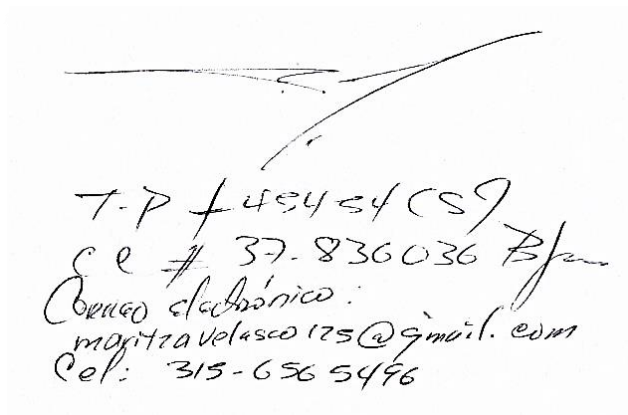 T.P # 45454 CSJ
CC # 37.836036 B/ga
Correo electrónico:
maritzavelasco125@gmail.com
Cel: 315-6565496